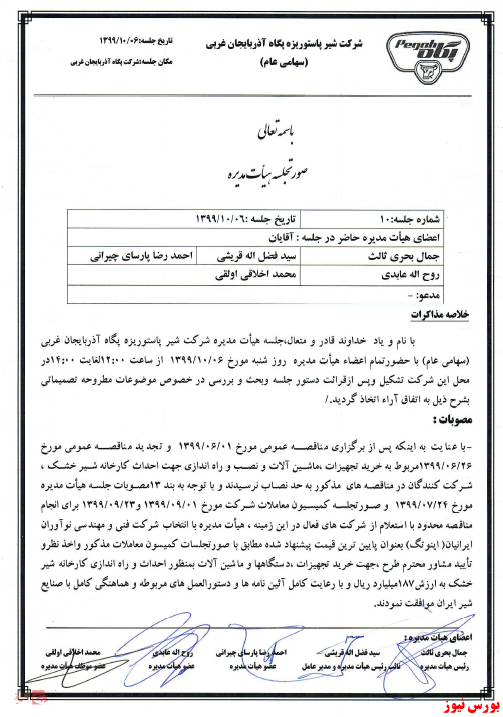 Pegah
پگاه
شرکت شیر پاستوریزه پگاه آذربایجان غربی
(سهامی عام)
تاریخ جلسه:۱۳۹۹/۱۰/۰۶
مکان جلسه:شرکت پگاه آذربایجان غربی
باسمه تعالی
صورتجلسه هیأت مدیره
شماره جلسه:۱۰ تاریخ جلسه :۱۳۹۹/۱۰/۰۶
اعضای هیأت مدیره حاضر در جلسه : آقایان
جمال بحری ثالث سید فضل اله قریشی احمد رضا پارسای چیرانی
روح اله عابدی محمد اخلاقی اولقی
مدعو: -
خلاصه مذاکرات
با نام و یاد خداوند قادر و متعال،جلسه هیأت مدیره شرکت شیر پاستوریزه پگاه آذربایجان غربی
(سهامی عام) با حضورتمام اعضاء هیأت مدیره روز شنبه مورخ ۱۳۹۹/۱۰/۰۶ از ساعت ۱۲:۰۰لغایت ۱۴:۰۰در
محل این شرکت تشکیل وپس ازقرائت دستور جلسه وبحث و بررسی در خصوص موضوعات مطروحه تصمیماتی
بشرح ذیل به اتفاق آراء اتخاذ گردید./
مصوبات :
-با عنایت به اینکه پس از برگزاری مناقصه عمومی مورخ ۱۳۹۹/۰۶/۰۱ و تجدید مناقصه عمومی مورخ
۱۳۹۹/۰۶/۲۶مربوط به خرید تجهیزات ،ماشین آلات و نصب و راه اندازی جهت احداث کارخانه شیر خشک ،
شرکت کنندگان در مناقصه های مذکور به حد نصاب نرسیدند و با توجه به بند ۱۳مصوبات جلسه هیأت مدیره
مورخ ۱۳۹۹/۰۷/۲۴ و صورتجلسه کمیسیون معاملات شرکت مورخ ۱۳۹۹/۰۹/۰۱ و۱۳۹۹/۰۹/۲۳ برای انجام
مناقصه محدود با استعلام از شرکت های فعال در این زمینه ، هیأت مدیره با انتخاب شرکت فنی و مهندسی نوآوران
ایرانیان( اینوتگ) بعنوان پایین ترین قیمت پیشنهاد شده مطابق با صورتجلسات کمیسون معاملات مذکور واخذ نظرو
تأیید مشاور محترم طرح ،جهت خرید تجهیزات ،دستگاهها و ماشین آلات بمنظور احداث و راه اندازی کارخانه شیر
خشک به ارزش۱۸۷میلیارد ریال و با رعایت کامل آئین نامه ها و دستورالعمل های مربوطه و هماهنگی کامل با صنایع
شیر ایران موافقت نمودند.
اعضای هیأت مدیره :
جمال بحری ثالث سید فضل اله قریشی احمد رضا پارسای چیرانی روح اله عابدی محمد اخلاقی اولقی
رئیس هیأت مدیره نائب رئیس هیأت مدیره و مدیر عامل عضو هیأت مدیره عضو هیأت مدیره عضو موظف هیأت مدیره
بورس نیوز